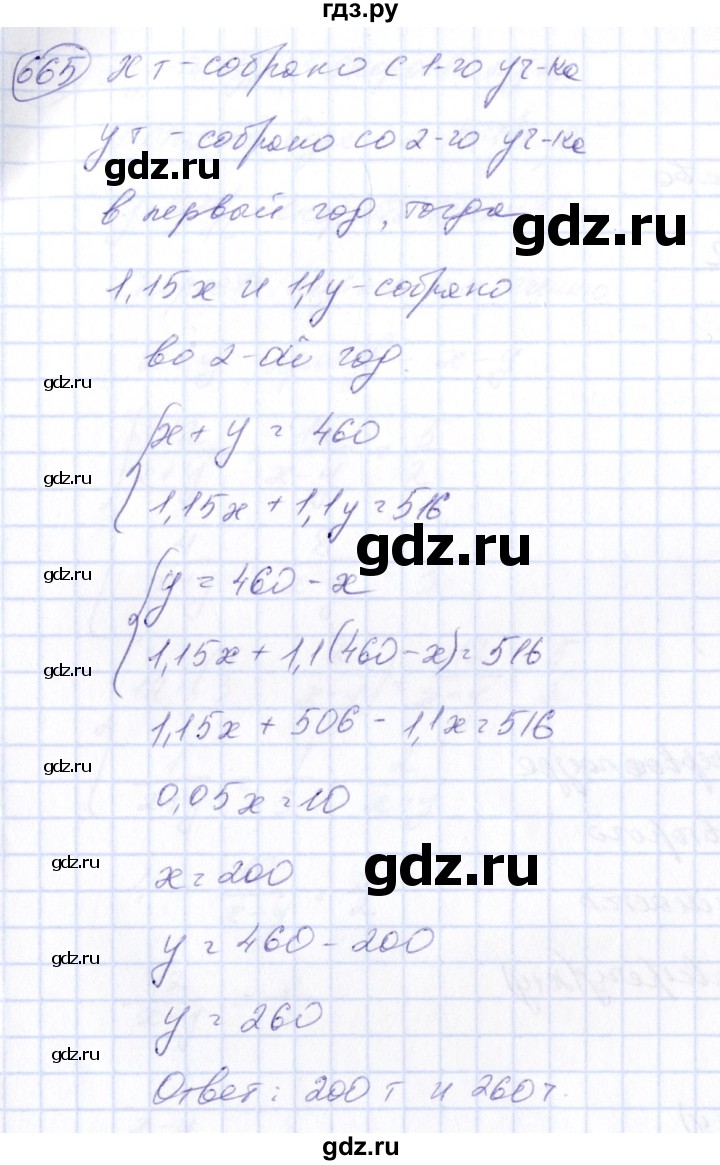 гдз.ру
665 x т - собрано с 1-го уч-ка
y т - собрано со 2-го уч-ка
gdz.ru
в первый год, тогда
gdz.ru
1,15x и 1,1y - собрано
во 2-ой год.
gdz.ru
x + y = 460
gdz.ru
1,15x + 1,1y = 516
gdz.ru
gdz.ru
y = 460 - x
1,15x + 1,1(460 - x) = 516
gdz.ru
1,15x + 506 - 1,1x = 516
gdz.ru
0,05x = 10
gdz.ru
gdz.ru
x = 200
y = 460 - 200
gdz.ru
y = 260
gdz.ru
Ответ: 200 т и 260 т.
gdz.ru